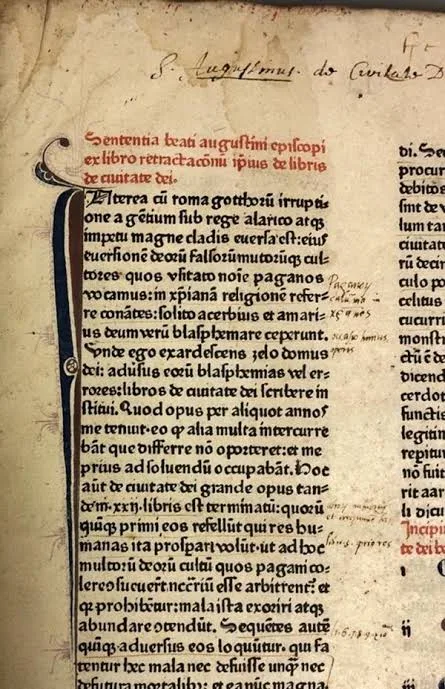 S. Augustinus. de Civitate D
Sententia beati augustini episcopi
ex libro retractacōnū ip̄ius de libris
de ciuitate dei.
Nterea cū roma gotthorū irrupti-
one agētium sub rege alarico atq̨
impetu magne cladis euersa est: eiuſ
euersionē deorū falsorū mutorūq̨ cul-
tores quos vsitato noīe paganos
vocamus: in xp̄ianā religionē refer-
re conātes: solito acerbius et amari-
us deum verū blasphemare ceperunt.
Vnde ego exardescens zelo domus
dei: adūsus eorū blasphemias vel er-
rores: libros de ciuitate dei scribere in
stitui. Quod opus per aliquot annoſ
me tenuit. eo ꝙ alia multa intercurre
bāt que differre nō oporteret: et me
prius ad soluendū occupabāt. Hoc
aūt de ciuitate dei grande opus tan-
dē m̄ .xxij. libris est terminatū: quorū
quīq̨ primi eos refellūt qui res hu-
manas ita prospari volūt. ut ad hoc
multorū deorū cultū quos pagani co-
lere ↄsueuert̄. nccr̄iū esse arbitrent̄: et
q̄ prohibētur: mala ista exoriri atq̨
abundare ↄtendūt. Sequētes autē
quīq̨ aduersus eos loquūtur. qui fa
tentur hec mala nec defuisse unq̨̄ nec
defutura mortalibꝰ. et ea nūc magna.
di. Se
procur
debitos
sint de v
lum tan
ctu
rū decir
culo po
celitus
cucurri
monstr
ctū ē de
dicend
cerdot
functi
legitin
repitur
nō fuit
rit aar
li dicu
Incipi
te dei b
i
ij
iij